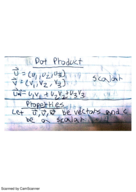 Dot Product
u⃗ = (u₁, u₂, u₃)
v⃗ = (v₁, v₂, v₃)
Scalar
u₁v₁ + u₂v₂ + u₃v₃
Properties
Let u⃗, v⃗, w⃗ be vectors and c
be a scalar
Scanned by CamScanner